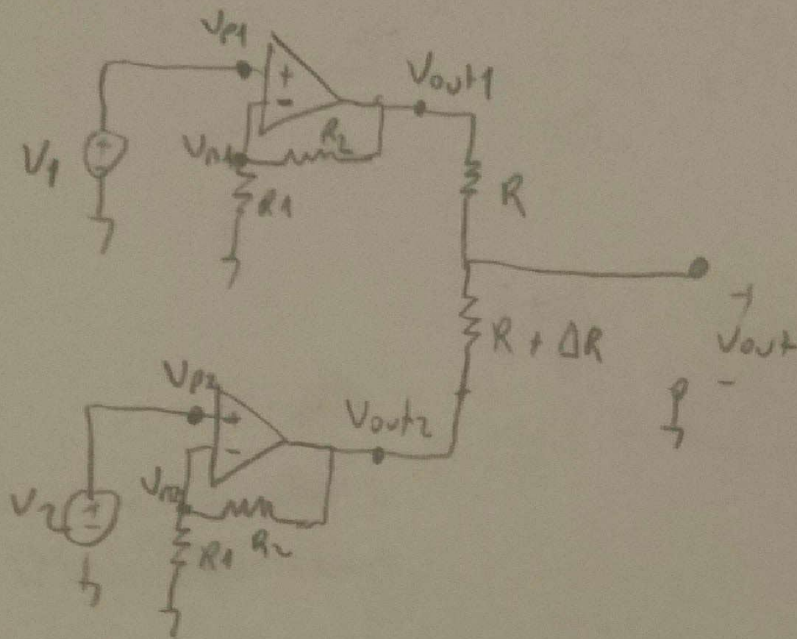 Vp1
+
-
Vout1
V1
+
Vn1
R2
R1
R
R + ΔR
+
Vout
-
Vp2
+
-
Vout2
V2
+
-
Vn2
R1
R2